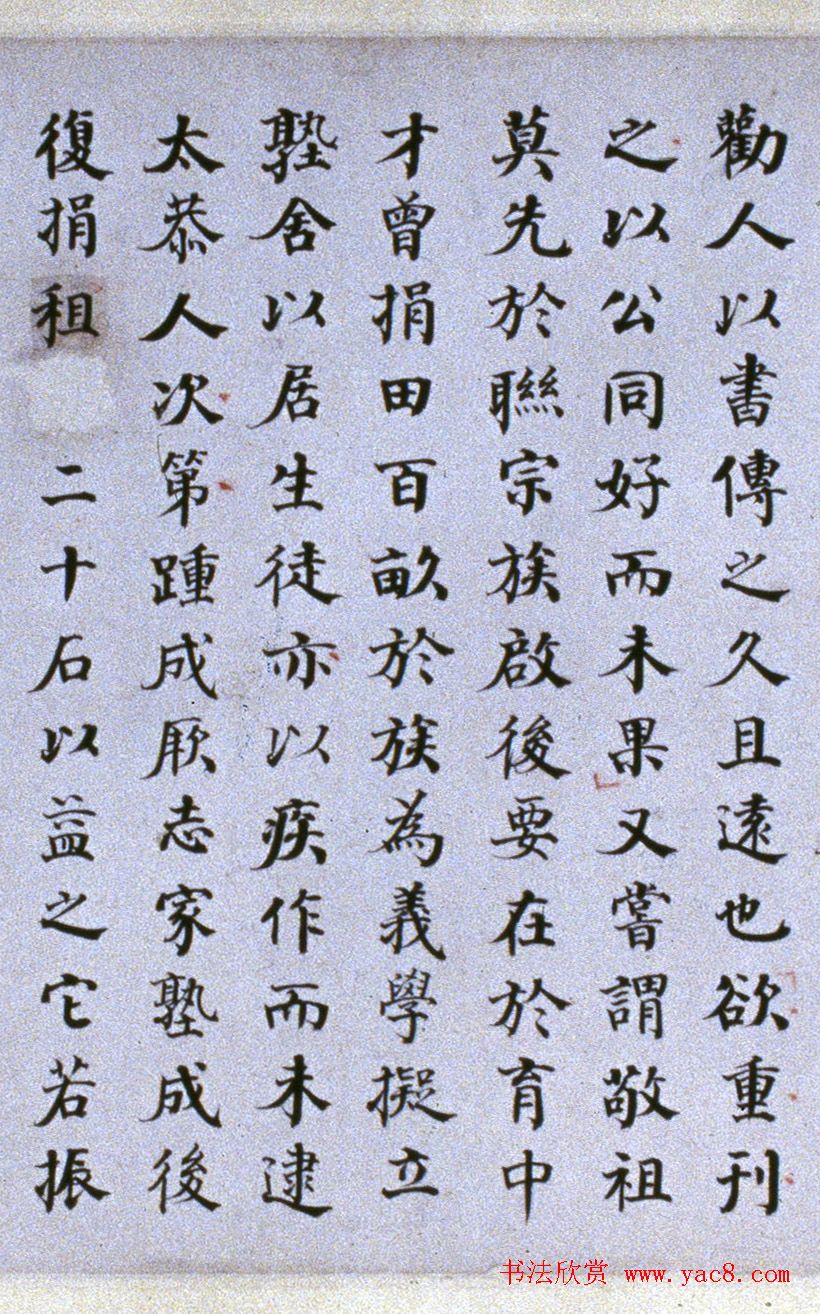 勸人以書傳之久且遠也欲重刊
之以公同好而未果又嘗謂敬祖
莫先於聯宗族啟後要在於育中
才曾捐田百畝於族為義學擬立
塾舍以居生徒亦以疾作而未逮
太恭人次第踵成厥志家塾成後
復捐租二十石以益之它若振
书法欣赏 www.yac8.com